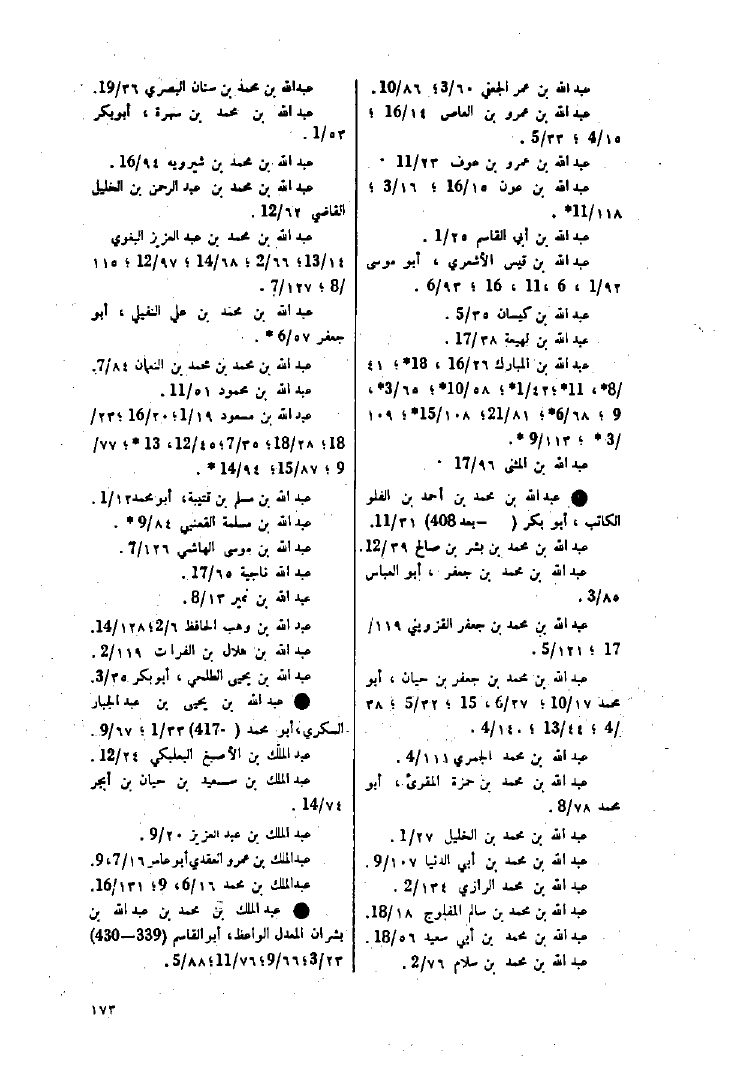 عبد الله بن عمر الجعفي ٣/٦٠؛ 10/٨٦.
عبد الله بن عمرو بن العاص 16/١٤ ؛
4/١٥ ؛ 5/٣٣ .
عبد الله بن عمرو بن عوف 11/٢٣ .
عبد الله بن عون 16/١٥ ؛ 3/١٦ ؛
11/١١٨* .
عبد الله بن أبي القاسم 1/٢٥ .
عبد الله بن قيس الأشعري ، أبو موسى
1/٩٢ ، 6 ، 11 ، 16 ؛ 6/٩٣ .
عبد الله بن كيسان 5/٣٥ .
عبد الله بن لهيعة 17/٣٨ .
عبد الله بن المبارك 16/٢٦ ، 18* ؛ ٤١
/8* ، 11* ؛ 1/٤٢* ؛ 10/٥٨* ؛ 3/٦٥* ،
9 ؛ 6/٦٨* ؛ 21/٨١ ؛ 15/١٠٨* ؛ ١٠٩
/3 * ؛ 9/١١٣ * .
عبد الله بن المثنى 17/٩٦ .
● عبدالله بن محمد بن أحمد بن الفلو
الكاتب ، أبو بكر ( –بعد 408) 11/٣١.
عبد الله بن محمد بن بشر بن صالح 12/٣٩.
عبد الله بن محمد بن جعفر ، أبو العباس
3/٨٥ .
عبد الله بن محمد بن جعفر القزويني ١١٩/
17 ؛ 5/١٢١ .
عبد الله بن محمد بن جعفر بن حيان ، أبو
محمد 10/١٧ ؛ 6/٢٧ ، 15 ؛ 5/٣٢ ؛ ٣٨
/4 ؛ 13/٤٤ ؛ 4/١٤٠ .
عبد الله بن محمد الجمري 4/١١١ .
عبد الله بن محمد بن حمزة المقرئ ، أبو
محمد 8/٧٨ .
عبد الله بن محمد بن الخليل 1/٢٧ .
عبد الله بن محمد بن أبي الدنيا 9/١٠٧ .
عبد الله بن محمد الرازي 2/١٣٤ .
عبد الله بن محمد بن سالم المفلوج 18/١٨.
عبد الله بن محمد بن أبي سعيد 18/٥٦.
عبد الله بن محمد بن سلام 2/٧٦ .
عبدالله بن محمد بن سنان البصري 19/٣٦.
عبد الله بن محمد بن سهرة ، أبوبكر
1/٥٣ .
عبد الله بن محمد بن شيرويه 16/٩٤ .
عبد الله بن محمد بن عبد الرحمن بن الخليل
القاضي 12/٦٢ .
عبد الله بن محمد بن عبد العزيز البغوي
13/١٤؛ 2/٦٦ ؛ 14/٦٨ ؛ 12/٩٧ ؛ ١١٥
/8 ؛ 7/١٢٧ .
عبد الله بن محمد بن علي النفيلي ، أبو
جعفر 6/٥٧ * .
عبد الله بن محمد بن محمد بن النعمان 7/٨٤.
عبد الله بن محمود 11/٥١ .
عبد الله بن مسعود 1/١٩؛ 16/٢٠ ؛٢٣/
18؛ 18/٢٨؛ 7/٣٥؛ 12/٤٥، 13 *؛ ٧٧/
9 ؛ 15/٨٧؛ 14/٩٤ * .
عبد الله بن مسلم بن قتيبة، أبو محمد 1/١٢.
عبد الله بن مسلمة القعنبي 9/٨٤ * .
عبد الله بن موسى الهاشمي 7/١٢٦ .
عبد الله ناجية 17/٦٥ .
عبد الله بن نمير 8/١٣ .
عبد الله بن وهب الحافظ 2/٦؛ 14/١٢٨.
عبد الله بن هلال بن الفرات 2/١١٩ .
عبد الله بن يحيى الطلحي ، أبوبكر 3/٣٥.
● عبد الله بن يحيى بن عبد الجبار
السكري،أبو محمد ( -417) 1/٣٣ ؛ 9/٦٧ .
عبد الملك بن الأصبغ البعلبكي 12/٢٤ .
عبد الملك بن سعيد بن حيان بن أبجر
14/٧٤ .
عبد الملك بن عبد العزيز 9/٢٠ .
عبدالملك بن عمرو العقدي أبو عامر 7/١٦، 9.
عبدالملك بن محمد 6/١٦، 9؛ 16/١٣١.
● عبد الملك بن محمد بن عبد الله بن
بشران المعدل الواعظ، أبو القاسم (339—430)
3/٢٣؛ 9/٦٦؛ 11/٧٦؛ 5/٨٨.
١٧٣